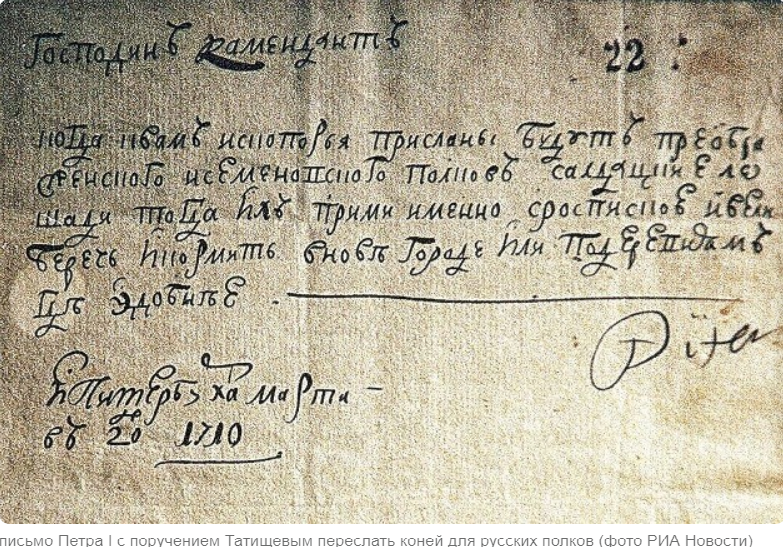 Господинъ камендантъ
22
когда к вамъ ис копорья присланы будутъ преобра
женского и семеновского полковъ салдацкие ло
шади тогда ихъ прими именно с роспискою и вели
беречь и кормить в нове городе или по деревнямъ
гдѣ удобнѣе
Piter
ис Питербурха марта
въ 20 1710
письмо Петра I с поручением Татищевым переслать коней для русских полков (фото РИА Новости)